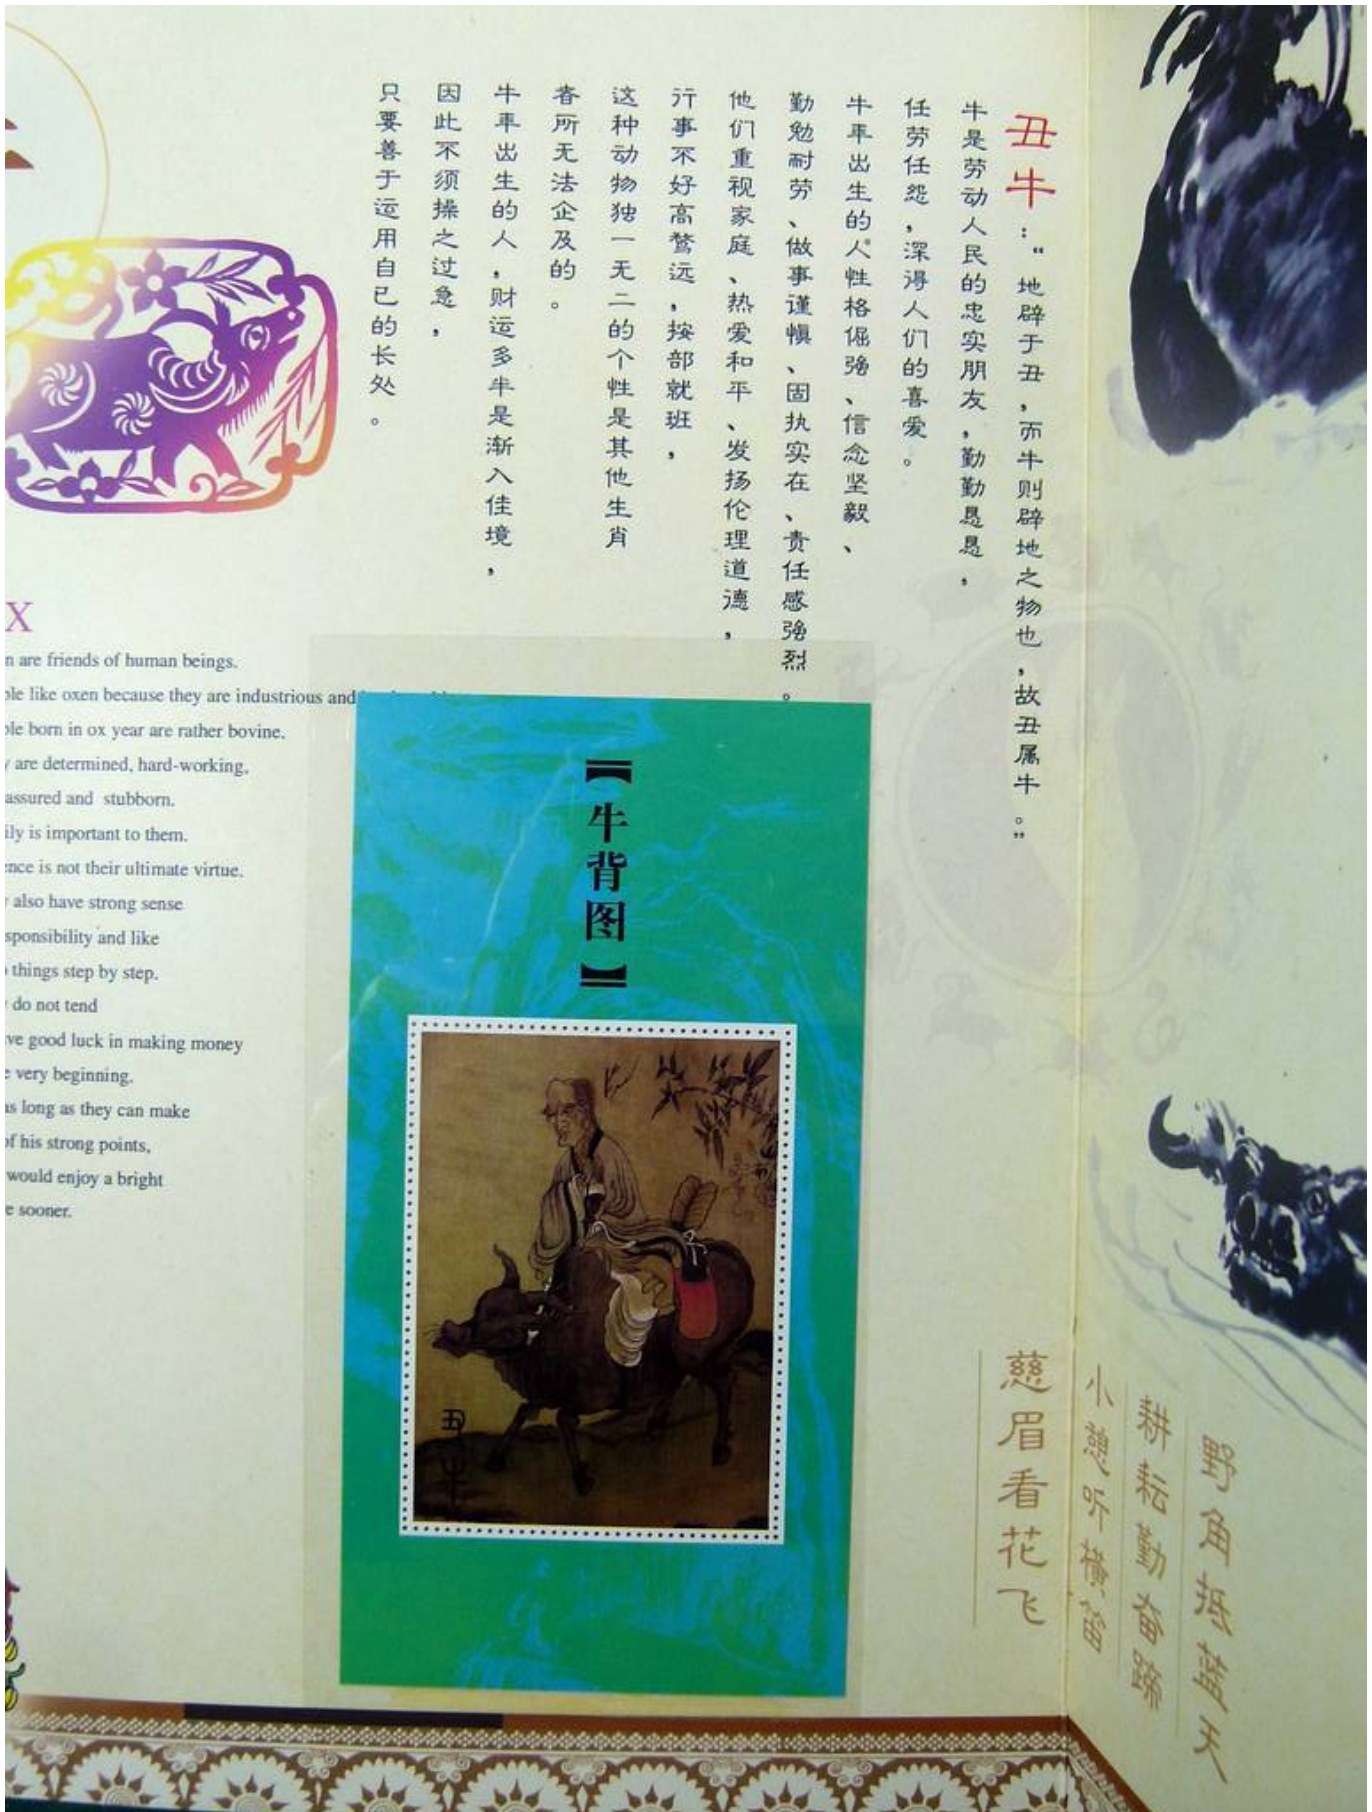 丑牛：“地辟于丑，而牛则辟地之物也，故丑属牛。”
牛是劳动人民的忠实朋友，勤勤恳恳，
任劳任怨，深得人们的喜爱。
牛年出生的人性格倔强、信念坚毅、
勤勉耐劳、做事谨慎、固执实在、责任感强烈。
他们重视家庭、热爱和平、发扬伦理道德，
行事不好高骛远，按部就班，
这种动物独一无二的个性是其他生肖
者所无法企及的。
牛年出生的人，财运多半是渐入佳境，
因此不须操之过急，
只要善于运用自己的长处。
X
n are friends of human beings.
ple like oxen because they are industrious and
ple born in ox year are rather bovine.
y are determined, hard-working,
assured and stubborn.
ily is important to them.
ence is not their ultimate virtue.
also have strong sense
sponsibility and like
things step by step.
do not tend
ve good luck in making money
e very beginning.
as long as they can make
of his strong points,
would enjoy a bright
e sooner.
【牛背图】
丑牛
野角抵蓝天
耕耘勤奋蹄
小憩听横笛
慈眉看花飞